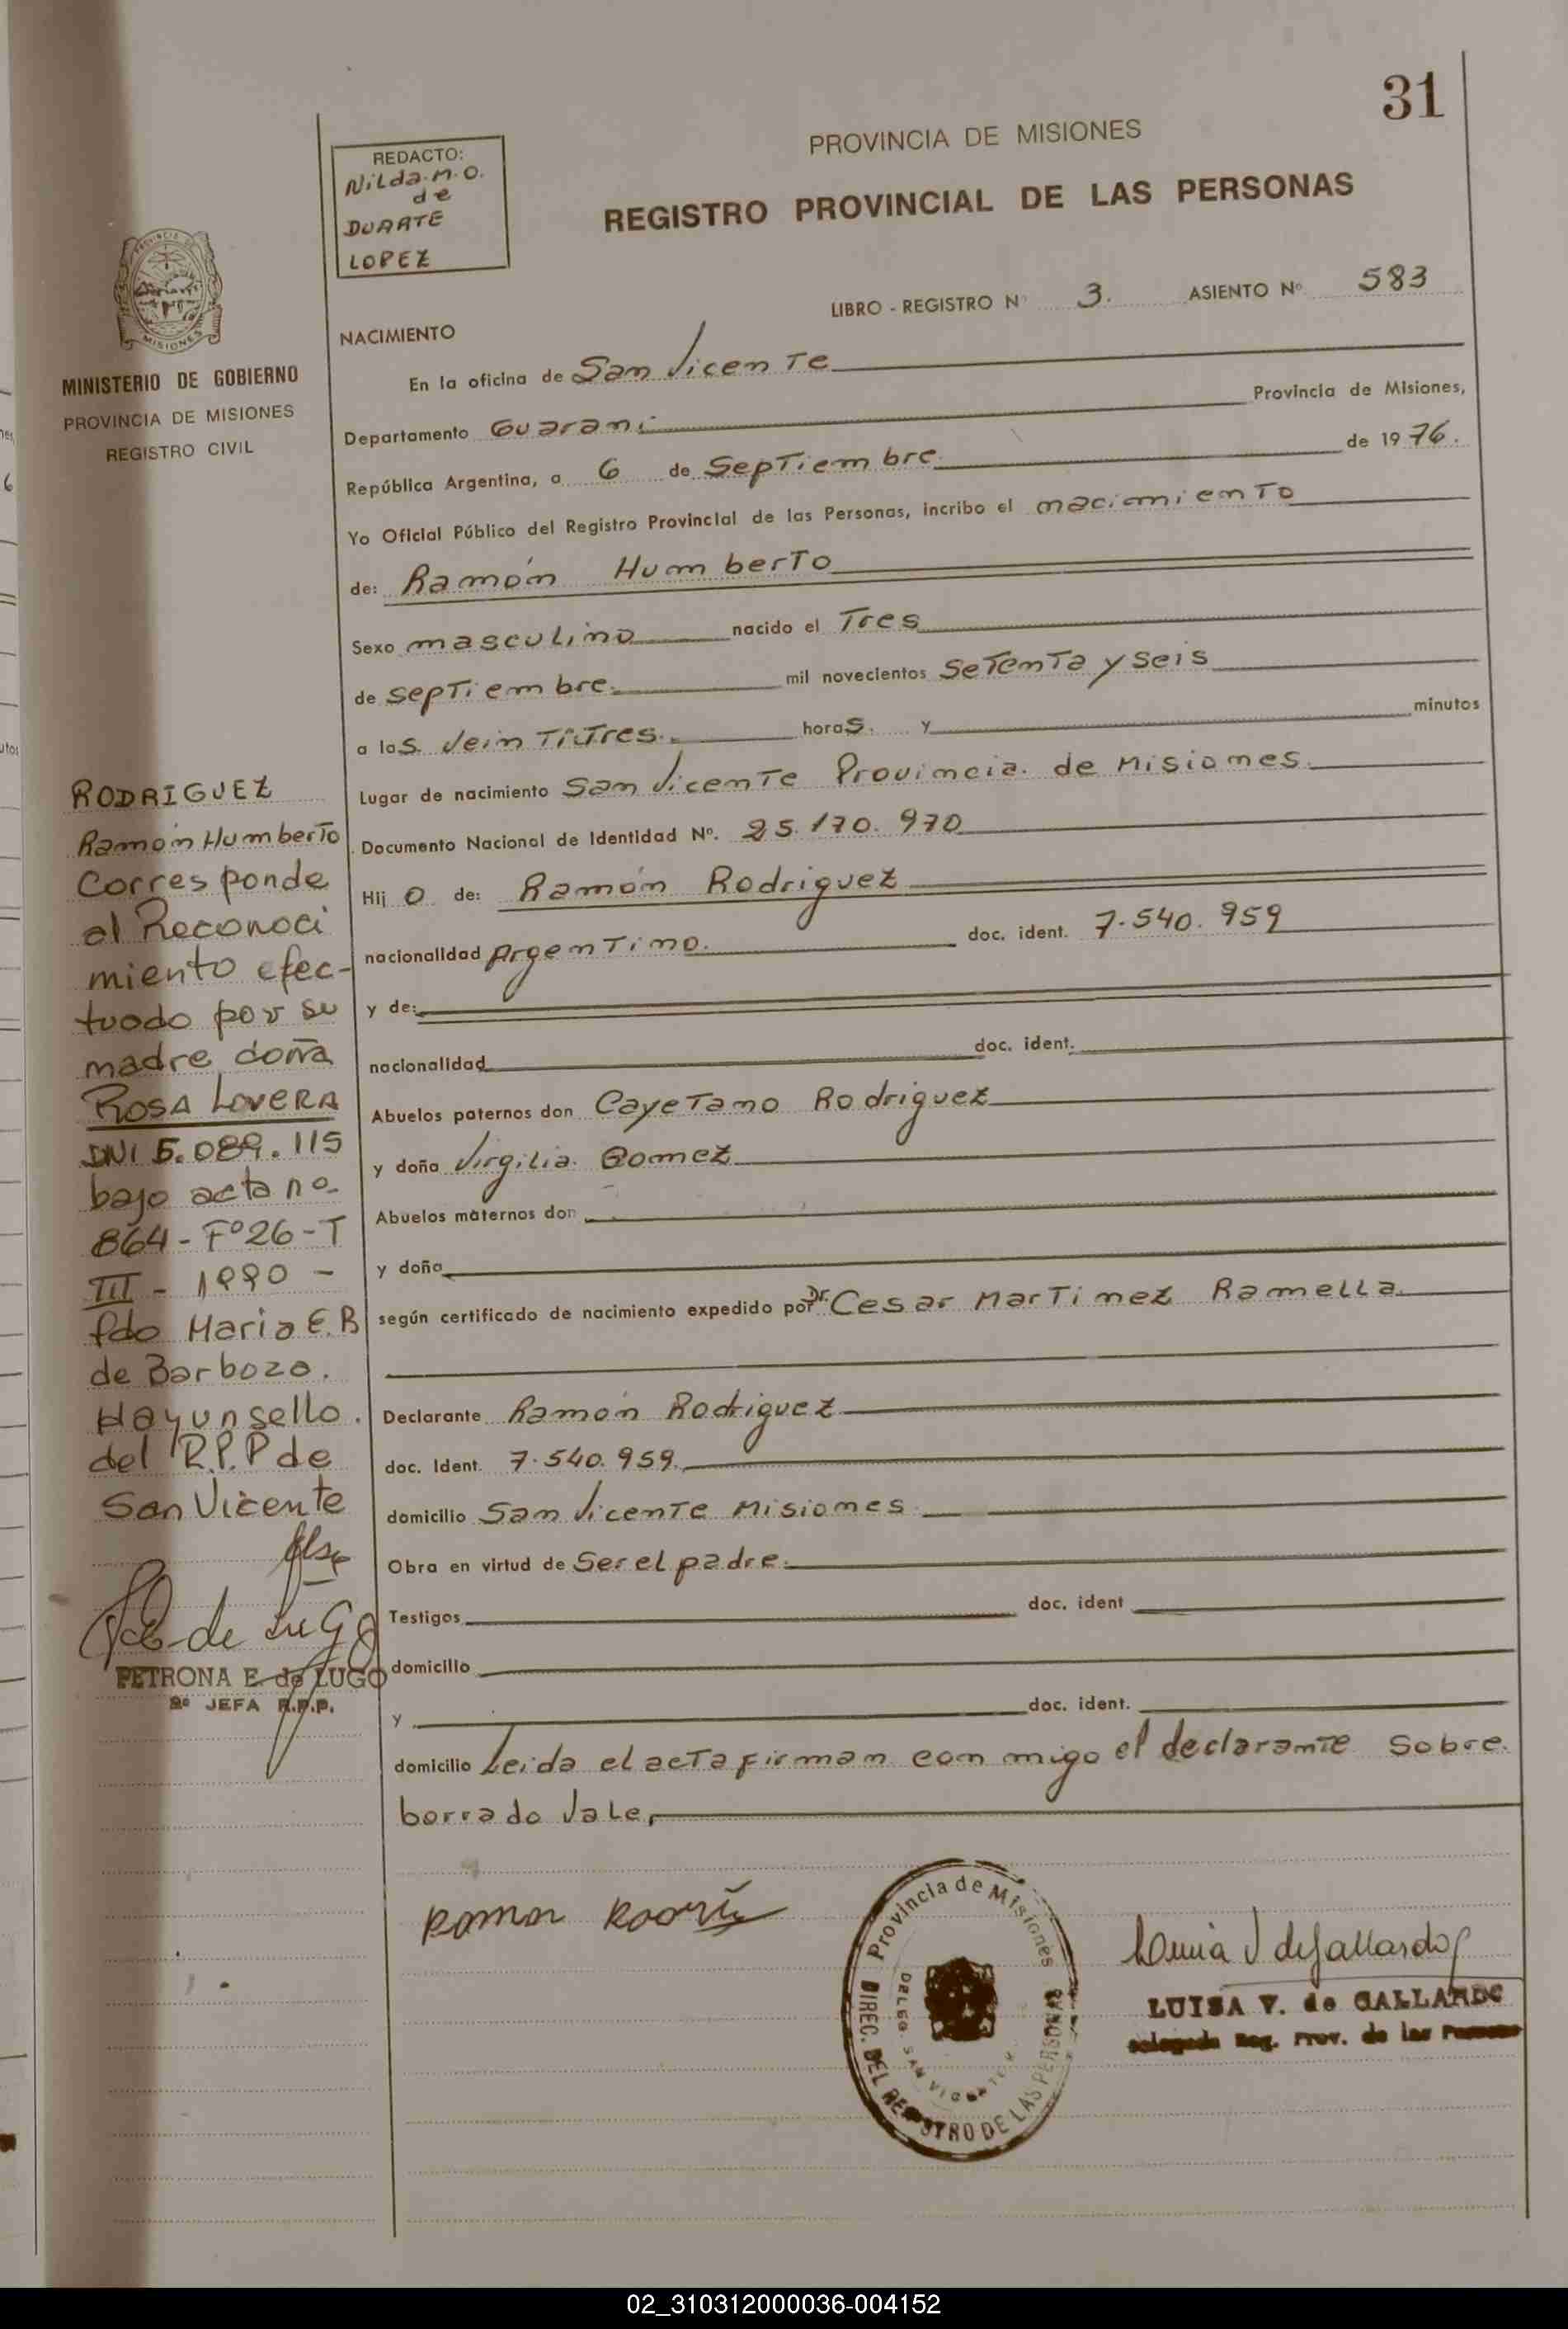 31
PROVINCIA DE MISIONES
REGISTRO PROVINCIAL DE LAS PERSONAS
REDACTO:
Nilda.M.O.
de
DUARTE
LOPEZ
LIBRO - REGISTRO Nº 3. ASIENTO Nº 583
NACIMIENTO
En la oficina de San Vicente
Departamento Guarani Provincia de Misiones,
República Argentina, a 6 de Septiembre de 1976.
Yo Oficial Público del Registro Provincial de las Personas, incribo el nacimiento
de: Ramón Humberto
Sexo masculino nacido el Tres
de septiembre. mil novecientos Setenta y seis
a las. Veintitres. horas. y minutos
Lugar de nacimiento San Vicente Provincia. de Misiones.
Documento Nacional de Identidad Nº. 25.170.970
Hij o de: Ramón Rodriguez
nacionalidad Argentino. doc. ident. 7.540.959
y de:
nacionalidad doc. ident.
Abuelos paternos don Cayetano Rodriguez
y doña Virgilia. Gomez
Abuelos maternos don
y doña
según certificado de nacimiento expedido por Dr. Cesar Martinez Ramella.
Declarante Ramón Rodriguez
doc. Ident. 7.540.959.
domicilio San Vicente Misiones.
Obra en virtud de Ser el padre.
Testigos doc. ident
domicilio
y doc. ident.
domicilio Leida el acta firman con migo el declarante Sobre
borrado Vale,
Provincia de Misiones
DIREC. DEL REGISTRO DE LAS PERSONAS
DELEG. SAN VICENTE
LUISA V. de GALLARDO
Delegada Reg. Prov. de las Personas
MISIONES
MINISTERIO DE GOBIERNO
PROVINCIA DE MISIONES
REGISTRO CIVIL
RODRIGUEZ
Ramón Humberto
Corresponde
al Reconoci
miento efec-
tuado por su
madre doña
ROSA LOVERA
DNI 5.089.115
bajo acta nº
864 - Fº26 - T
III - 1990 -
fdo Maria E.B
de Barbozo.
Hay un sello.
del R.P.P de
San Vicente
PETRONA E. de LUGO
2º JEFA R.P.P.
02_310312000036-004152